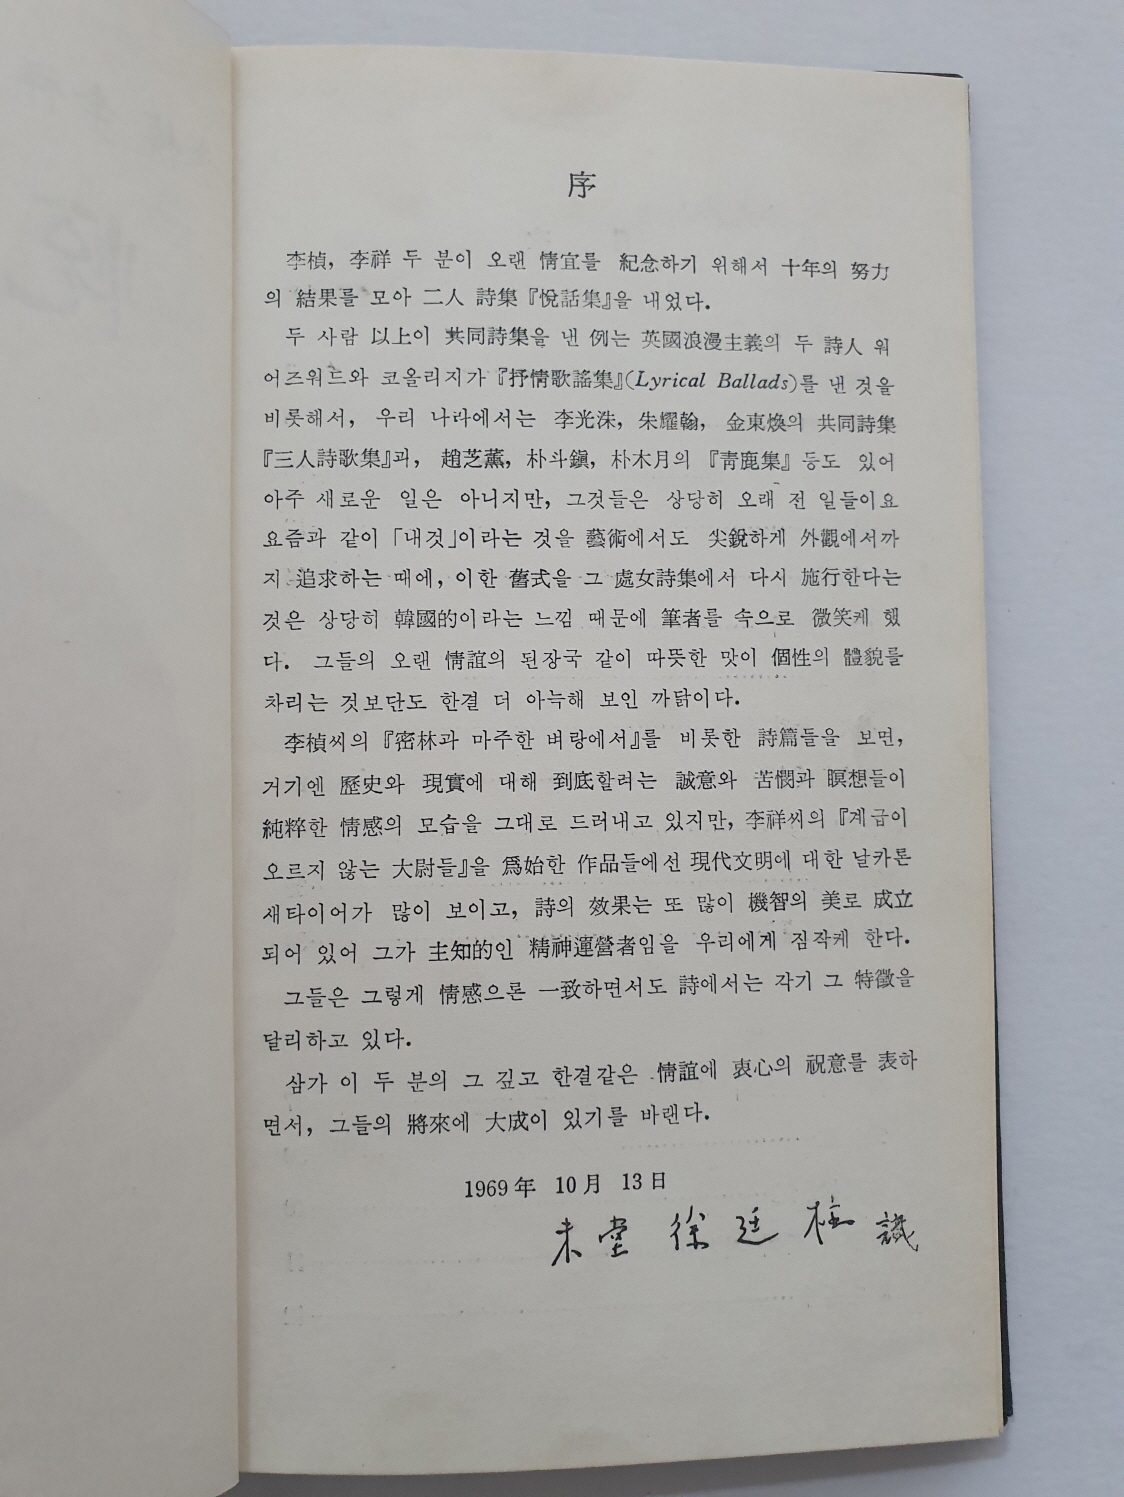 序
李楨, 李祥 두 분이 오랜 情宜를 紀念하기 위해서 十年의 努力
의 結果를 모아 二人 詩集『悅話集』을 내었다.
두 사람 以上이 共同詩集을 낸 例는 英國浪漫主義의 두 詩人 워
어즈워드와 코올리지가『抒情歌謠集』(Lyrical Ballads)를 낸 것을
비롯해서, 우리 나라에서는 李光洙, 朱耀翰, 金東煥의 共同詩集
『三人詩歌集』과, 趙芝薰, 朴斗鎭, 朴木月의 『靑鹿集』 등도 있어
아주 새로운 일은 아니지만, 그것들은 상당히 오래 전 일들이요
요즘과 같이 「내것」이라는 것을 藝術에서도 尖銳하게 外觀에서까
지 追求하는 때에, 이한 舊式을 그 處女詩集에서 다시 施行한다는
것은 상당히 韓國的이라는 느낌 때문에 筆者를 속으로 微笑케 했
다. 그들의 오랜 情誼의 된장국 같이 따뜻한 맛이 個性의 體貌를
차리는 것보단도 한결 더 아늑해 보인 까닭이다.
李楨씨의『密林과 마주한 벼랑에서』를 비롯한 詩篇들을 보면,
거기엔 歷史와 現實에 대해 到底할려는 誠意와 苦憫과 瞑想들이
純粹한 情感의 모습을 그대로 드러내고 있지만, 李祥씨의『계급이
오르지 않는 大尉들』을 爲始한 作品들에선 現代文明에 대한 날카론
새타이어가 많이 보이고, 詩의 效果는 또 많이 機智의 美로 成立
되어 있어 그가 主知的인 精神運營者임을 우리에게 짐작케 한다.
그들은 그렇게 情感으론 一致하면서도 詩에서는 각기 그 特徵을
달리하고 있다.
삼가 이 두 분의 그 깊고 한결같은 情誼에 衷心의 祝意를 表하
면서, 그들의 將來에 大成이 있기를 바랜다.
1969年 10月 13日
未堂 徐廷柱 識